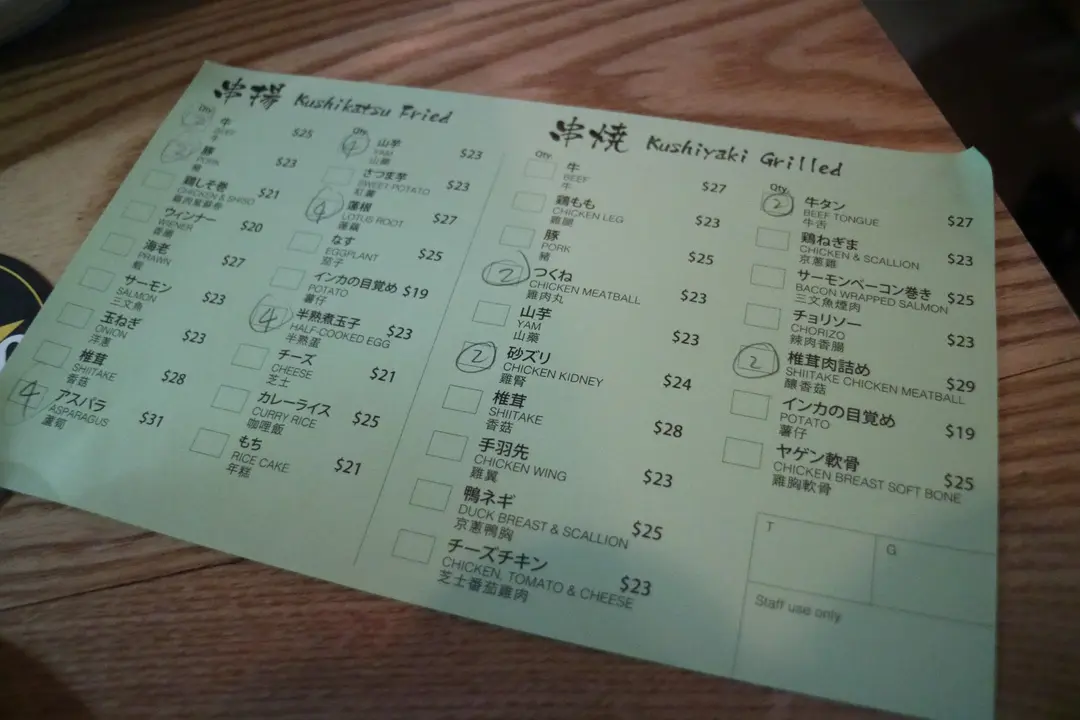 串揚 Kushikatsu Fried
Qty.
2 牛 $25
BEEF
牛
2 豚 $23
PORK
豬
鶏しそ巻 $21
CHICKEN & SHISO
雞肉紫蘇卷
ウィンナー $20
WIENER
香腸
海老 $27
PRAWN
蝦
サーモン $23
SALMON
三文魚
玉ねぎ $23
ONION
洋蔥
椎茸 $28
SHIITAKE
香菇
4 アスパラ $31
ASPARAGUS
蘆筍
Qty.
4 山芋 $23
YAM
山藥
さつま芋 $23
SWEET POTATO
紅薯
4 蓮根 $27
LOTUS ROOT
蓮藕
なす $25
EGGPLANT
茄子
インカの目覚め $19
POTATO
薯仔
4 半熟煮玉子 $23
HALF-COOKED EGG
半熟蛋
チーズ $21
CHEESE
芝士
カレーライス $25
CURRY RICE
咖哩飯
もち $21
RICE CAKE
年糕
串焼 Kushiyaki Grilled
Qty.
牛 $27
BEEF
牛
鶏もも $23
CHICKEN LEG
雞腿
豚 $25
PORK
豬
2 つくね $23
CHICKEN MEATBALL
雞肉丸
山芋 $23
YAM
山藥
2 砂ズリ $24
CHICKEN KIDNEY
雞腎
椎茸 $28
SHIITAKE
香菇
手羽先 $23
CHICKEN WING
雞翼
鴨ネギ $25
DUCK BREAST & SCALLION
京蔥鴨胸
チーズチキン $23
CHICKEN, TOMATO & CHEESE
芝士番茄雞肉
Qty.
2 牛タン $27
BEEF TONGUE
牛舌
鶏ねぎま $23
CHICKEN & SCALLION
京蔥雞
サーモンベーコン巻き $25
BACON WRAPPED SALMON
三文魚煙肉
チョリソー $23
CHORIZO
辣肉香腸
2 椎茸肉詰め $29
SHIITAKE CHICKEN MEATBALL
釀香菇
インカの目覚め $19
POTATO
薯仔
ヤゲン軟骨 $25
CHICKEN BREAST SOFT BONE
雞胸軟骨
T
G
Staff use only